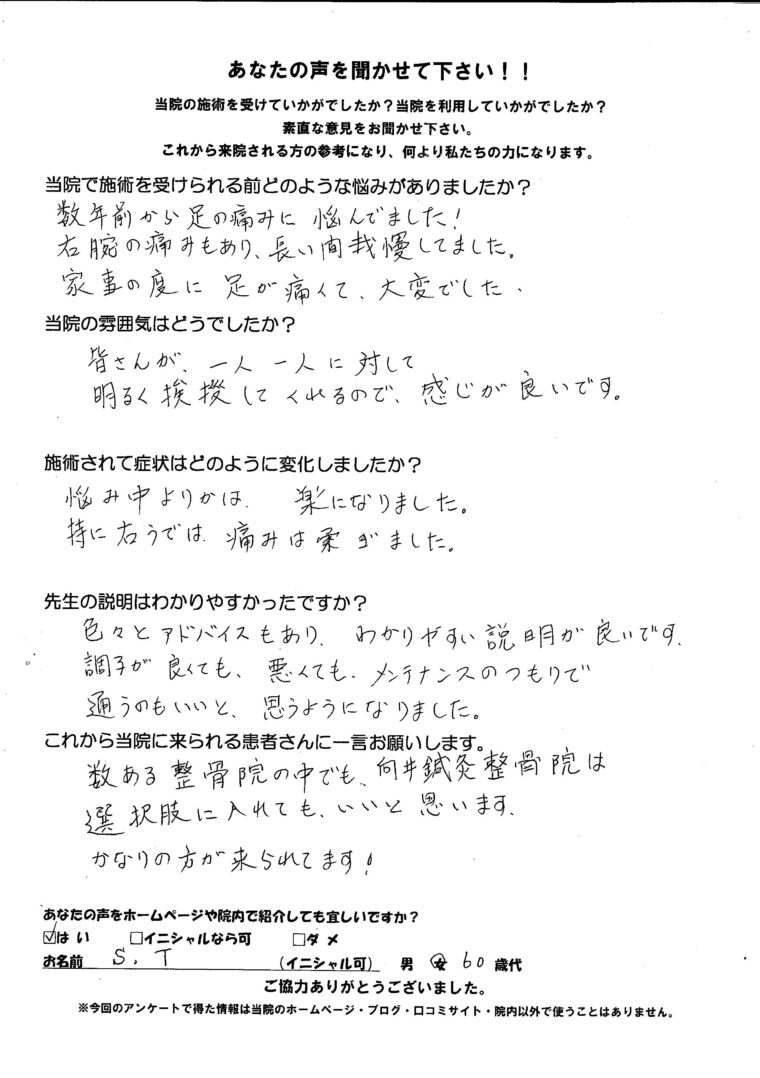 あなたの声を聞かせて下さい！！
当院の施術を受けていかがでしたか？当院を利用していかがでしたか？
素直な意見をお聞かせ下さい。
これから来院される方の参考になり、何より私たちの力になります。
当院で施術を受けられる前どのような悩みがありましたか？
数年前から足の痛みに 悩んでました！
右腕の痛みもあり、長い間我慢してました。
家事の度に 足が痛くて、大変でした．
当院の雰囲気はどうでしたか？
皆さんが、一人一人に対して
明るく挨拶してくれるので、感じが良いです。
施術されて症状はどのように変化しましたか？
悩み中よりかは、楽になりました。
持に右うでは、痛みは柔ぎました。
先生の説明はわかりやすかったですか？
色々とアドバイスもあり、わかりやすい説明が良いです、
調子が良くても、悪くても、メンテナンスのつもりで
通うのもいいと、思うようになりました。
これから当院に来られる患者さんに一言お願いします。
数ある整骨院の中でも、向井鍼灸整骨院は
選択肢に入れても、いいと思います、
かなりの方が来られてます！
あなたの声をホームページや院内で紹介しても宜しいですか？
☑はい □イニシャルなら可 □ダメ
お名前 S.T (イニシャル可) 男 女 60 歳代
ご協力ありがとうございました。
※今回のアンケートで得た情報は当院のホームページ・ブログ・口コミサイト・院内以外で使うことはありません。